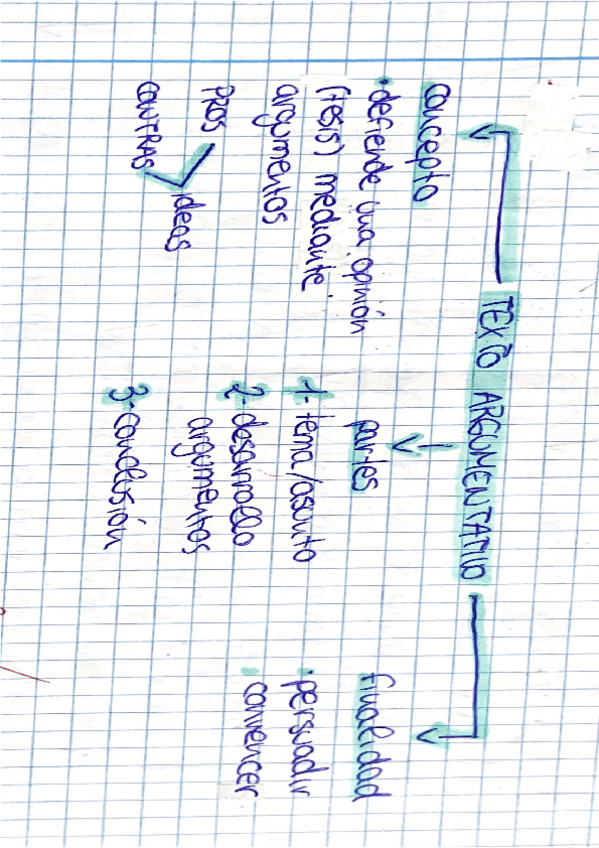 TEXTO ARGUMENTATIVO
concepto
• defiende una opinión
(tesis) mediante
argumentos
PROS
CONTRAS
ideas
partes
1- tema/asunto
2- desarrollo
argumentos
3- conclusión
finalidad
• persuadir
• convencer